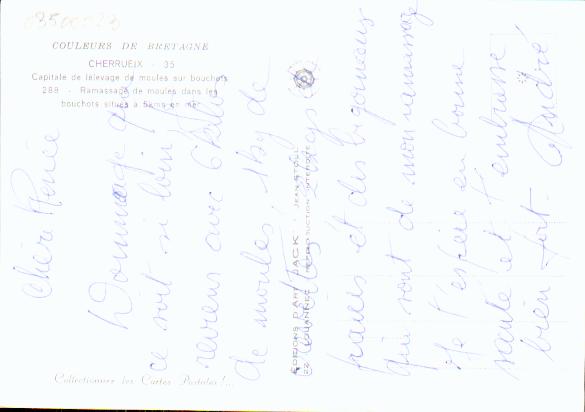 03500023
COULEURS DE BRETAGNE
CHERRUEIX - 35
Capitale de l'élevage de moules sur bouchots
288 - Ramassage de moules dans les
bouchots situés à 5kms en mer
Chère Renée
Dommage que
ce soit si loin je
reviens avec 6 kilos
de moules 1kg de
fraîches et des bigorneaux
qui sont de mon ramassage
Je t'espère en bonne
santé et t'embrasse
bien fort. André
EDITIONS D'ART JACK
Collectionner les Cartes Postales !...